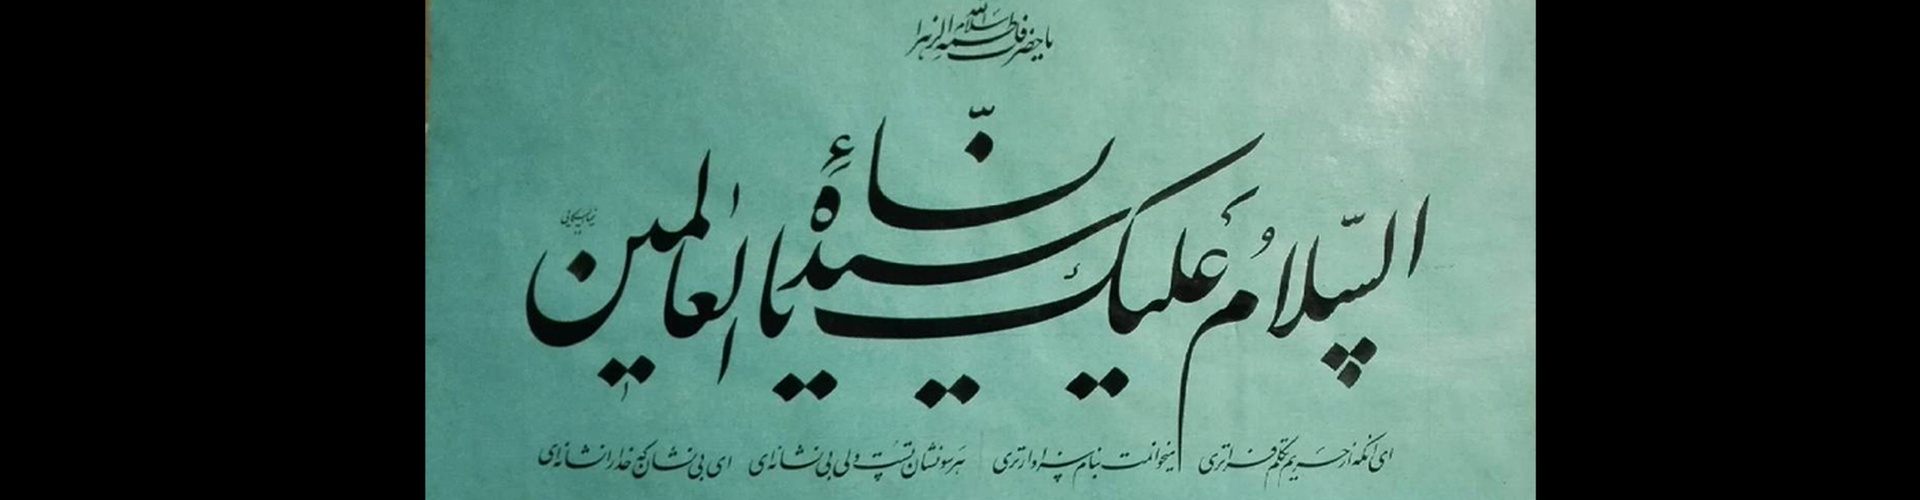 یا حضرت فاطمة الزهرا سلام الله
السَّلامُ عَلیکَ یا سیدةَ نساءِ العالمین
ای آنکه از حریم تکلم فراتری میخوانمت بنام سزاوارتری هر سو نشان تست ولی بی نشانه‌ای ای بی نشان که خدا را نشانه‌ای